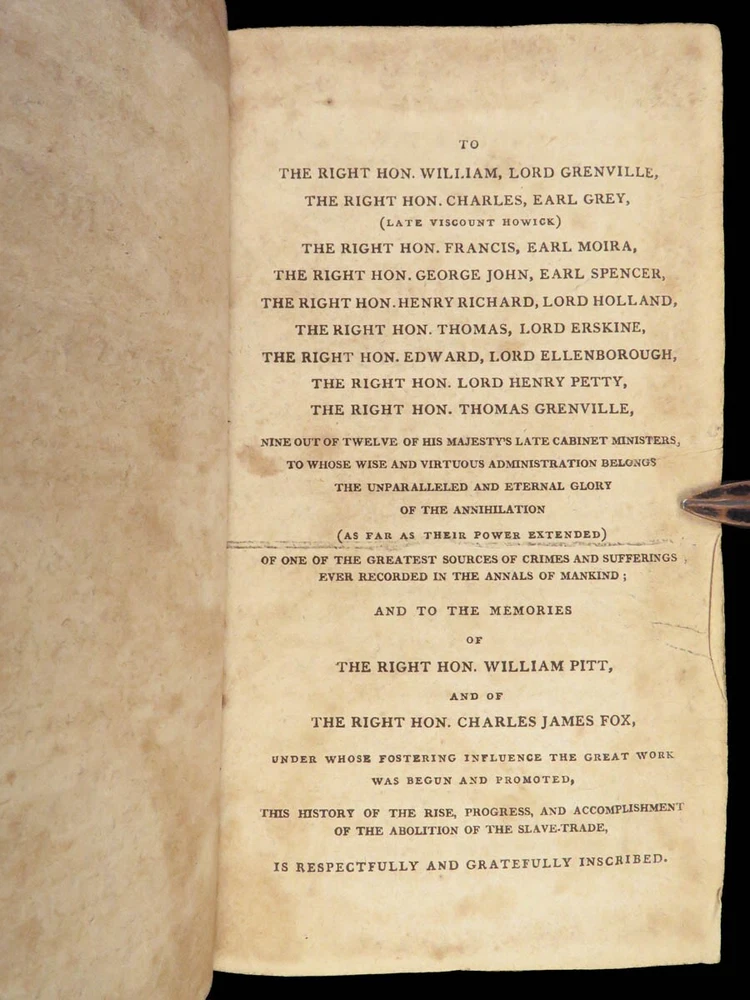 TO
THE RIGHT HON. WILLIAM, LORD GRENVILLE,
THE RIGHT HON. CHARLES, EARL GREY,
(LATE VISCOUNT HOWICK)
THE RIGHT HON. FRANCIS, EARL MOIRA,
THE RIGHT HON. GEORGE JOHN, EARL SPENCER,
THE RIGHT HON. HENRY RICHARD, LORD HOLLAND,
THE RIGHT HON. THOMAS, LORD ERSKINE,
THE RIGHT HON. EDWARD, LORD ELLENBOROUGH,
THE RIGHT HON. LORD HENRY PETTY,
THE RIGHT HON. THOMAS GRENVILLE,
NINE OUT OF TWELVE OF HIS MAJESTY'S LATE CABINET MINISTERS,
TO WHOSE WISE AND VIRTUOUS ADMINISTRATION BELONGS
THE UNPARALLELED AND ETERNAL GLORY
OF THE ANNIHILATION
(AS FAR AS THEIR POWER EXTENDED)
OF ONE OF THE GREATEST SOURCES OF CRIMES AND SUFFERINGS,
EVER RECORDED IN THE ANNALS OF MANKIND;
AND TO THE MEMORIES
OF
THE RIGHT HON. WILLIAM PITT,
AND OF
THE RIGHT HON. CHARLES JAMES FOX,
UNDER WHOSE FOSTERING INFLUENCE THE GREAT WORK
WAS BEGUN AND PROMOTED,
THIS HISTORY OF THE RISE, PROGRESS, AND ACCOMPLISHMENT
OF THE ABOLITION OF THE SLAVE-TRADE,
IS RESPECTFULLY AND GRATEFULLY INSCRIBED.